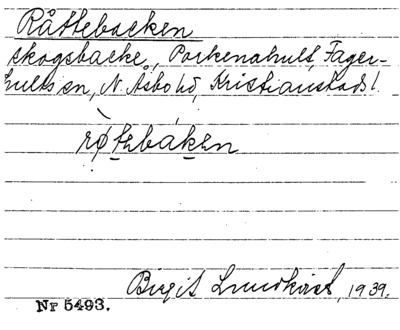 Råttebacken
skogsbacke, Porkenahult, Fager-
hults sn, N. Åsbo hd, Kristianstads l.
røtebaken
Birgit Lundkvist, 1939.
Nr 5493.